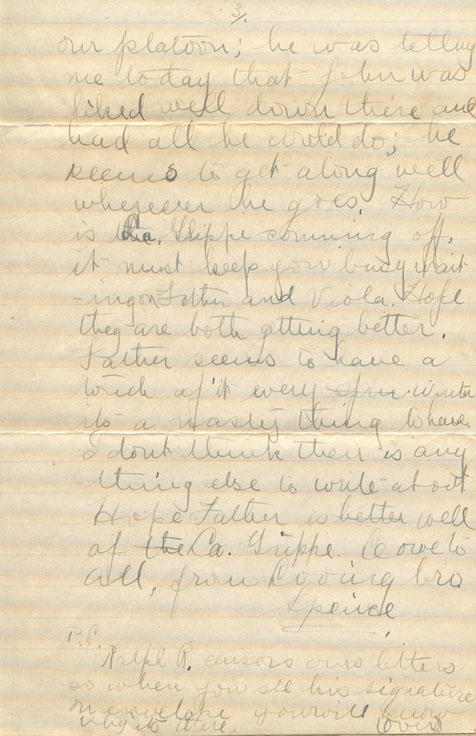 3/
our platoon; he was telling
me today that John was
liked well down there and
had all he could do; he
seems to get along well
wherever he goes. How
is the La. Grippe comming off,
it must keep you busy wait
-ing on Father and Viola. Hope
they are both getting better.
Father seems to have a
touch of it every winter
its a nasty thing to have.
I dont think their is any
thing else to write about
Hope Father is better well
of the La. Grippe. Love to
all, from Loving bro
Spence
P.S.
Ralph R. censors ours letters
so when you see his signature
on envelope you will know
why its there. (over)